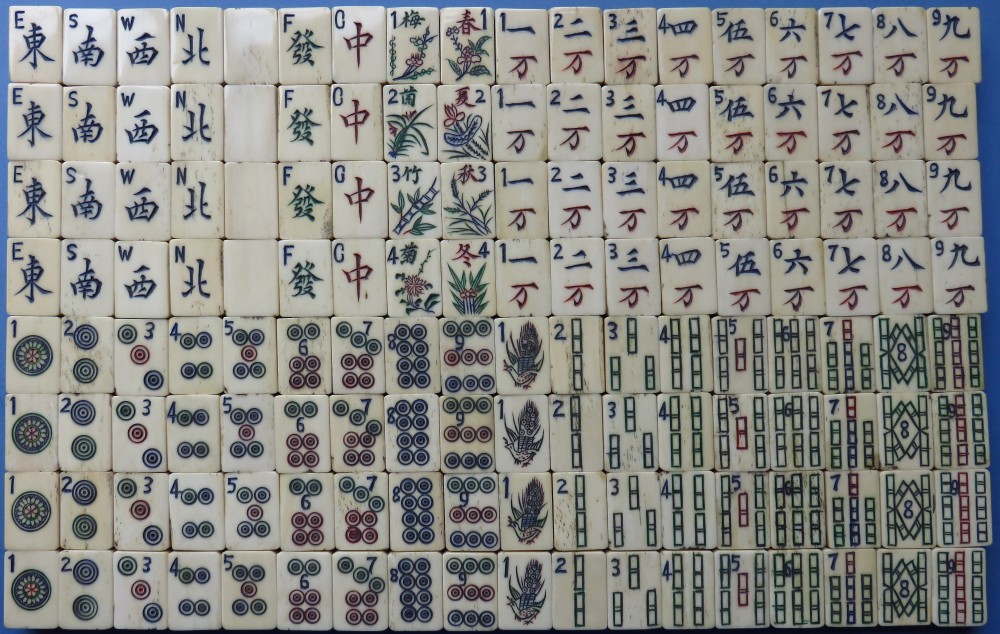 E東 S南 W西 N北 F發 C中 1梅 春1 1一万 2二万 3三万 4四万 5伍万 6六万 7七万 8八万 9九万
E東 S南 W西 N北 F發 C中 2茵 夏2 1一万 2二万 3三万 4四万 5伍万 6六万 7七万 8八万 9九万
E東 S南 W西 N北 F發 C中 3竹 秋3 1一万 2二万 3三万 4四万 5伍万 6六万 7七万 8八万 9九万
E東 S南 W西 N北 F發 C中 4菊 冬4 1一万 2二万 3三万 4四万 5伍万 6六万 7七万 8八万 9九万
1 2 3 4 5 6 7 8 9 1 2 3 4 5 6 7 8 9
1 2 3 4 5 6 7 8 9 1 2 3 4 5 6 7 8 9
1 2 3 4 5 6 7 8 9 1 2 3 4 5 6 7 8 9
1 2 3 4 5 6 7 8 9 1 2 3 4 5 6 7 8 9